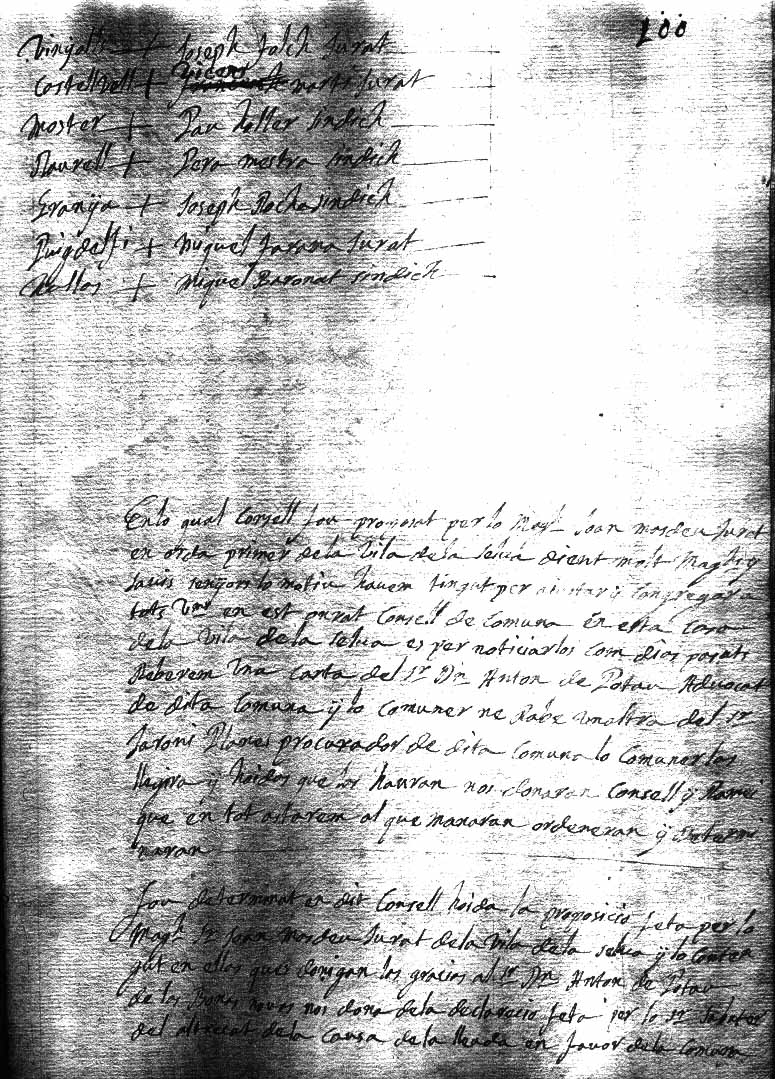 100
Vinyols + Joseph Folch Jurat
Castellvell + Vicens marti Jurat
Moster + Pauholler sindich
Maurell + Pera mestra sindich
Granya + Joseph Rocha sindich
Puigdelfi + Miquel Jurat
+ Miquel Baronat sindich
En lo qual Consell fou proposat per lo Magh Joan mosdeu Jurat
en orda primer de la Vila de la selva dient molt Maghs y
savis senyors lo motiu havem tingut per aiuntar y Congregar a
tots Vms en est privat Consell de Comuna en esta Casa
de la Vila de la selva es per noticiarlos Com dias pasats
Reberem Una Carta del Sr Dn Anton de Potau Advocat
de dita Comuna ÿ lo Comuner ne Rabe Unaltra del Sr
Jaroni Planes procurador de dita Comuna lo Comuner los
llegira ÿ hoidas que los hauran nos donaran Consell ÿ
que en tot astarem al que manaran ordeneran ÿ Determi
naran
Fou determinat en dit Consell hoida la proposicio feta per lo
Magh Sr Joan Mosdeu Jurat de la Vila de la selva ÿ lo Conten
gut en ellas ques donigan las gracias al Sr Dn Anton de Potau
de las Bonas novas nos dona de la declaracio feta per lo Sr
del de la Causa de la lleuda en favor de la Comuna